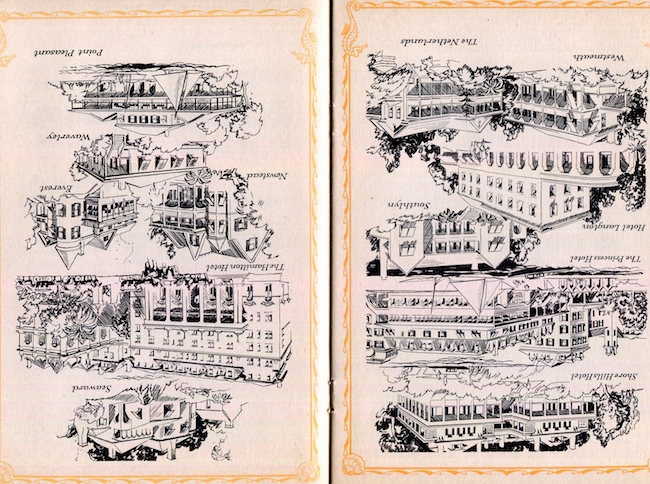 Shore Hills Hotel
The Princess Hotel
Hotel Langton
Southlyn
Westmeath
The Netherlands
Seaward
The Hamilton Hotel
Newstead
Everest
Waverley
Point Pleasant